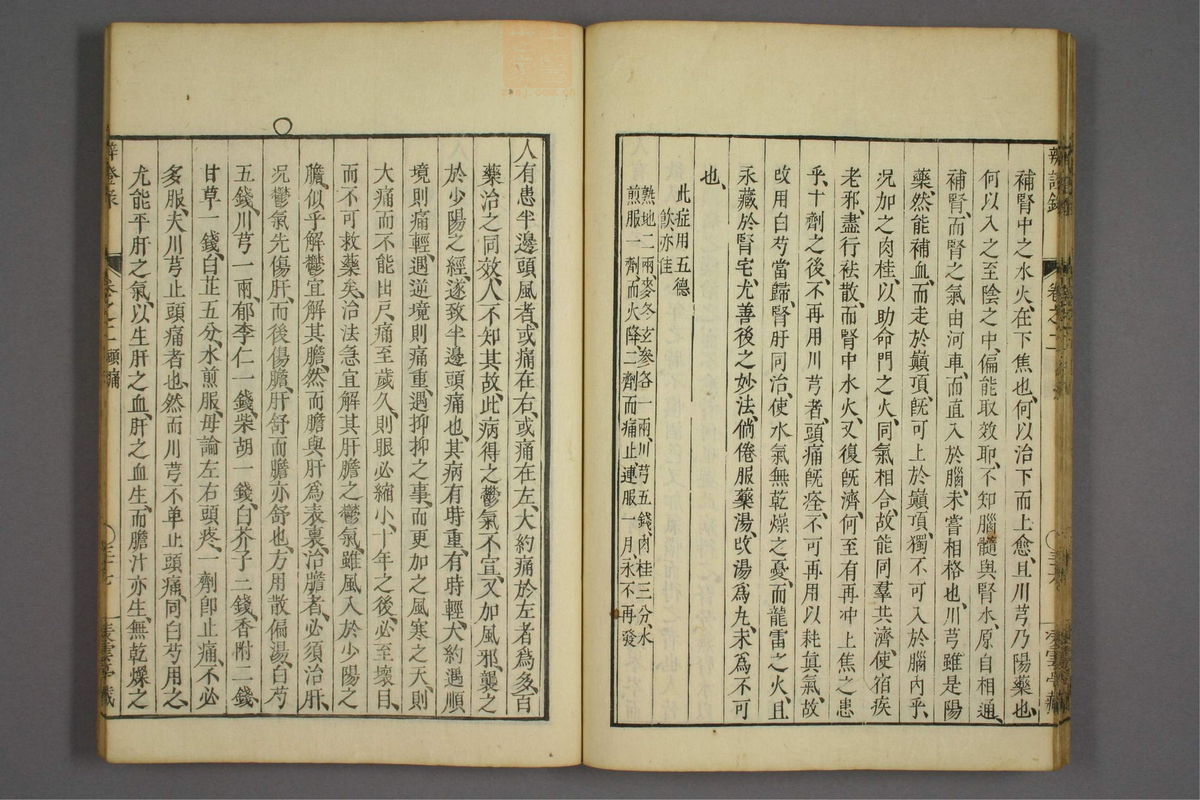 補腎中之水火、在下焦也、何以治下而上愈、且川芎乃陽藥也、
何以入之至陰之中、偏能取效耶、不知腦髓與腎水、原自相通、
補腎、而腎之氣、由河車、而直入於腦、未嘗相格也、川芎雖是陽
藥、然能補血、而走於巔頂、旣可上於巔頂、獨不可入於腦內乎、
况加之肉桂、以助命門之火、同氣相合、故能同羣共濟、使宿疾
老邪、盡行袪散、而腎中水火、又復旣濟、何至有再冲上焦之患
乎、十劑之後、不再用川芎者、頭痛旣痊、不可再用以耗眞氣、故
改用白芍當歸、腎肝同治、使水氣無乾燥之憂、而龍雷之火、且
永藏於腎宅、尤善後之妙法、倘倦服藥湯、攺湯爲丸、未爲不可
也、
此症用五德
飲亦佳
熟地二兩、麥冬玄參各一兩、川芎五錢、肉桂三分、水
煎服一劑、而火降、二劑而痛止、連服一月、永不再發
人有患半邊頭風者、或痛在右、或痛在左、大約痛於左者爲多、百
藥治之罔效、人不知其故、此病得之鬱氣不宣、又加風邪、襲之
於少陽之經、遂致半邊頭痛也、其病有時重、有時輕、大約遇順
境則痛輕、遇逆境則痛重、遇抑抑之事、而更加之風寒之天、則
大痛而不能出戶、痛至歲久、則眼必縮小、十年之後、必至壞目、
而不可救藥矣、治法急宜解其肝膽之鬱氣、雖風入於少陽之
膽、似乎解鬱宜解其膽、然而膽與肝爲表裏、治膽者、必須治肝、
况鬱氣先傷肝、而後傷膽、肝舒而膽亦舒也、方用散偏湯、白芍
五錢、川芎一兩、郁李仁一錢、柴胡一錢、白芥子二錢、香附二錢、
甘草一錢、白芷五分、水煎服、毋論左右頭疼、一劑卽止痛、不必
多服、夫川芎止頭痛者也、然而川芎不单止頭痛、同白芍用之、
尤能平肝之氣、以生肝之血、肝之血生、而膽汁亦生、無乾燥之
卷之二 頭痛